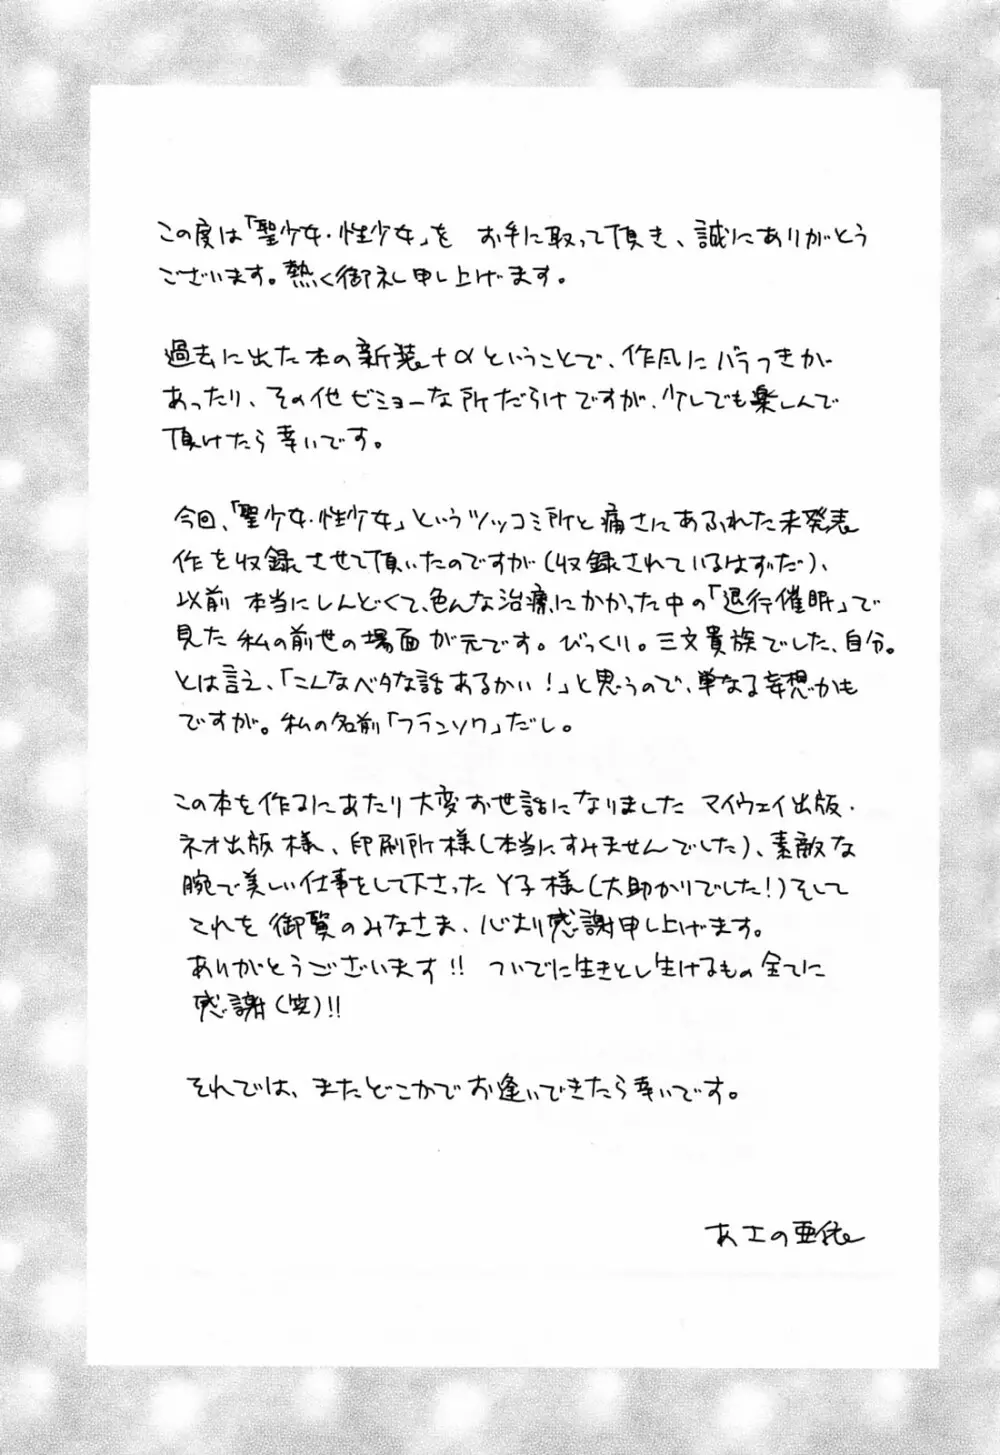 この度は「聖少女・性少女」を お手に取って頂き、誠にありがとう
ございます。熱く御礼申し上げます。
過去に出た本の新装+αということで、作風にバラつきが
あったり、その他ビミョーな所だらけですが、少しでも楽しんで
頂けたら幸いです。
今回、「聖少女・性少女」というツッコミ所と痛さにあふれた未発表
作を収録させて頂いたのですが(収録されているはずだ)、
以前 本当にしんどくて、色んな治療にかかった中の「退行催眠」で
見た 私の前世の場面が元です。びっくり。三文貴族でした、自分。
とは言え、「こんなベタな話あるかい!」と思うので、単なる妄想かも
ですが。私の名前「フランソワ」だし。
この本を作るにあたり大変お世話になりました マイウェイ出版・
ネオ出版様、印刷所様(本当にすみませんでした)、素敵な
腕で美しい仕事をして下さった Y子様(大助かりでした!)そして
これを御覧のみなさま、心より感謝申し上げます。
ありがとうございます!! ついでに生きとし生けるもの全てに
感謝(笑)!!
それでは、またどこかでお逢いできたら幸いです。
あさの亜依